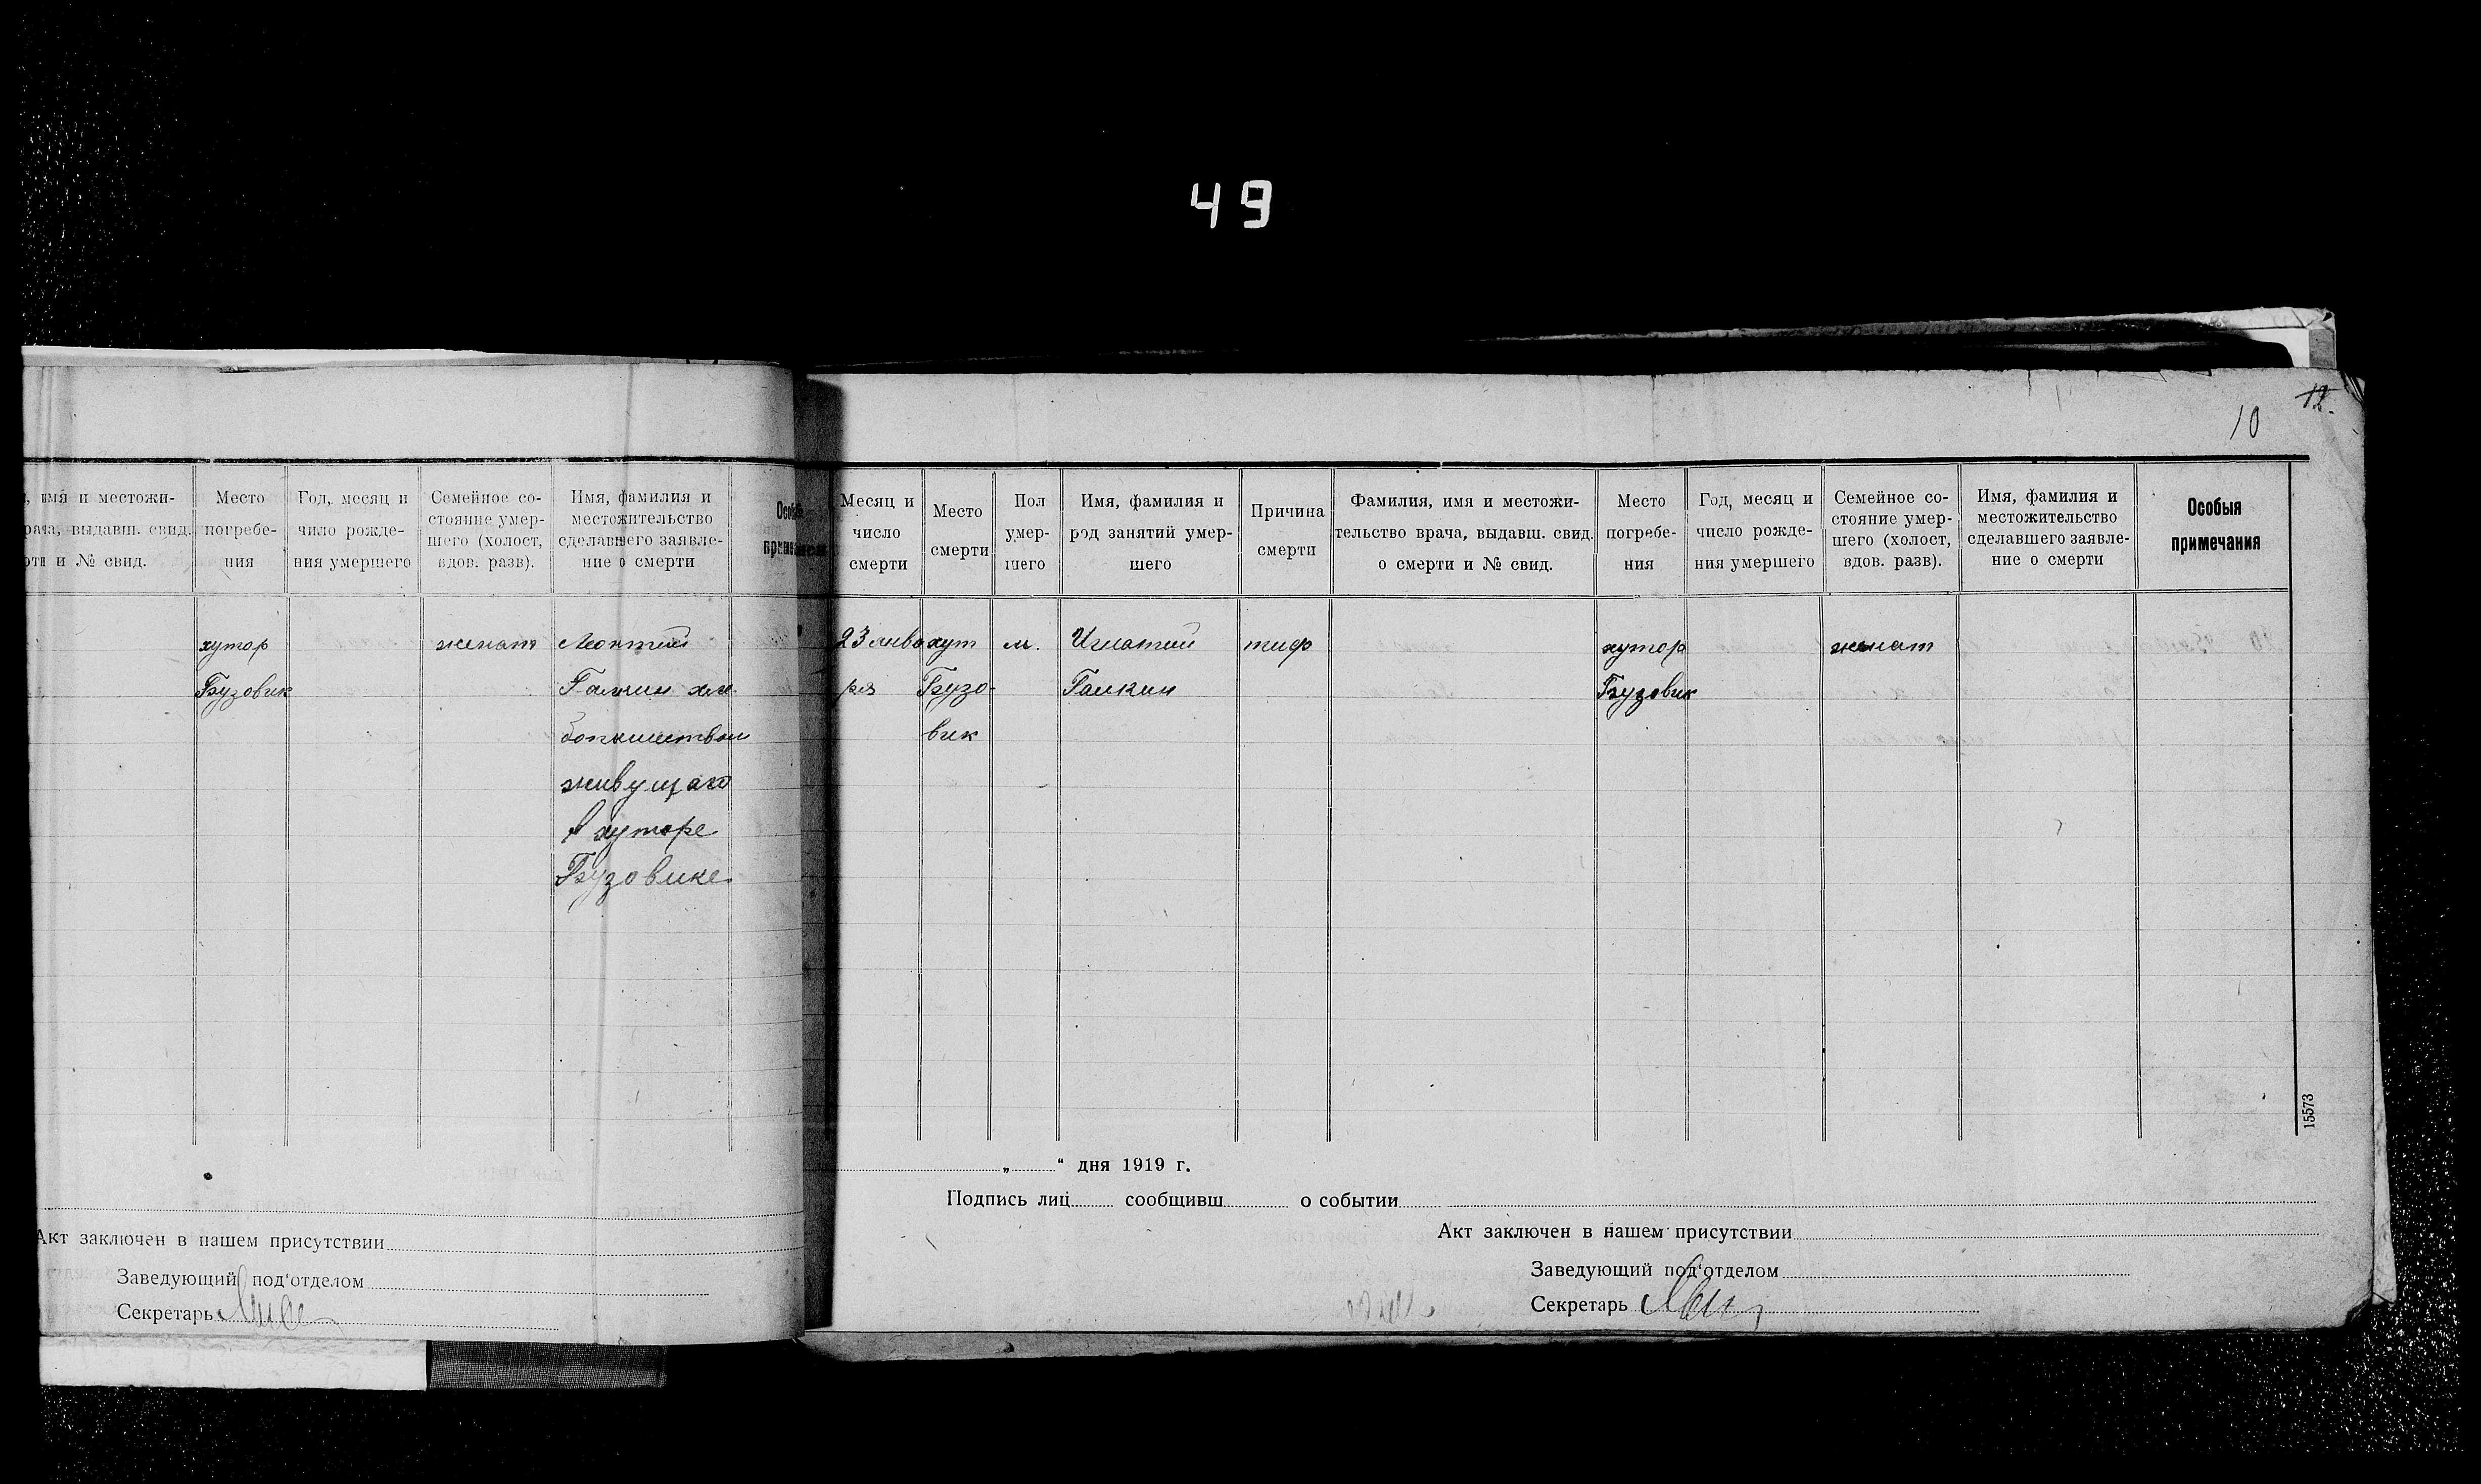 49
10
12.
, имя и местожи-
рача, выдавш. свид.
рти и № свид.
Место
погребе-
ния
Год, месяц и
чило рожде-
ния умершего
Семейное со-
стояние умер-
шего (холост,
вдов. разв).
Имя, фамилия и
местожительство
сделавшего заявле-
ние о смерти
хутор
Бузовик
женат
Леонтий
живущаго
в хуторе
Бузовике
Акт заключен в нашем присутствии
Заведующий под‘отделом
Секретарь
Месяц и
число
смерти
Место
смерти
Пол
умер-
шего
Имя, фамилия и
род занятий умер-
шего
Причина
смерти
Фамилия, имя и местожи-
тельство врача, выдавш. свид.
о смерти и № свид.
Место
погребе-
ния
Год, месяц и
число рожде-
ния умершего
Семейное со-
стояние умер-
шего (холост,
вдов. разв).
Имя, фамилия и
местожительство
сделавшего заявле-
ние о смерти
Особыя
примечания
23 янва
ря
хут
Бузо-
вик
м.
Игнатий
Галкин
тиф
хутор
Бузовик
женат
15573
„ “ дня 1919 г.
Подпись лиц сообщивш о событии
Акт заключен в нашем присутствии
Заведующий под‘отделом
Секретарь